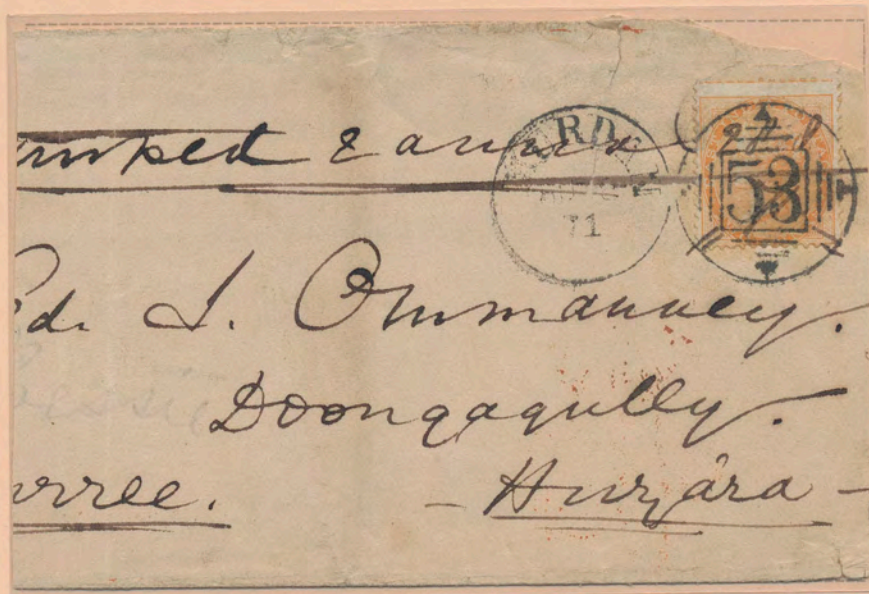 2 annas
ARDA
71
53
Ed. L. Ommanney.
Doongagully.
urree. - Huzára -